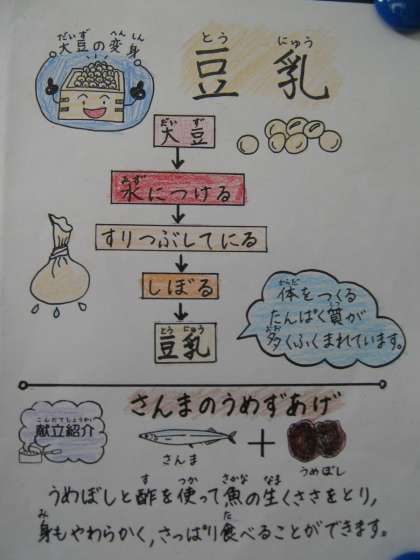 だいず へんしん
大豆の変身
とう にゅう
豆 乳
だい ず
大豆
みず
水につける
すりつぶしてにる
しぼる
とうにゅう
豆乳
からだ
体をつくる
しつ
たんぱく質が
おお
多くふくまれています。
こんだてしょうかい
献立紹介
さんまのうめずあげ
さんま
+
うめぼし
す つか さかな なま
うめぼしと酢を使って魚の生くささをとり,
み た
身もやわらかく,さっぱり食べることができます。